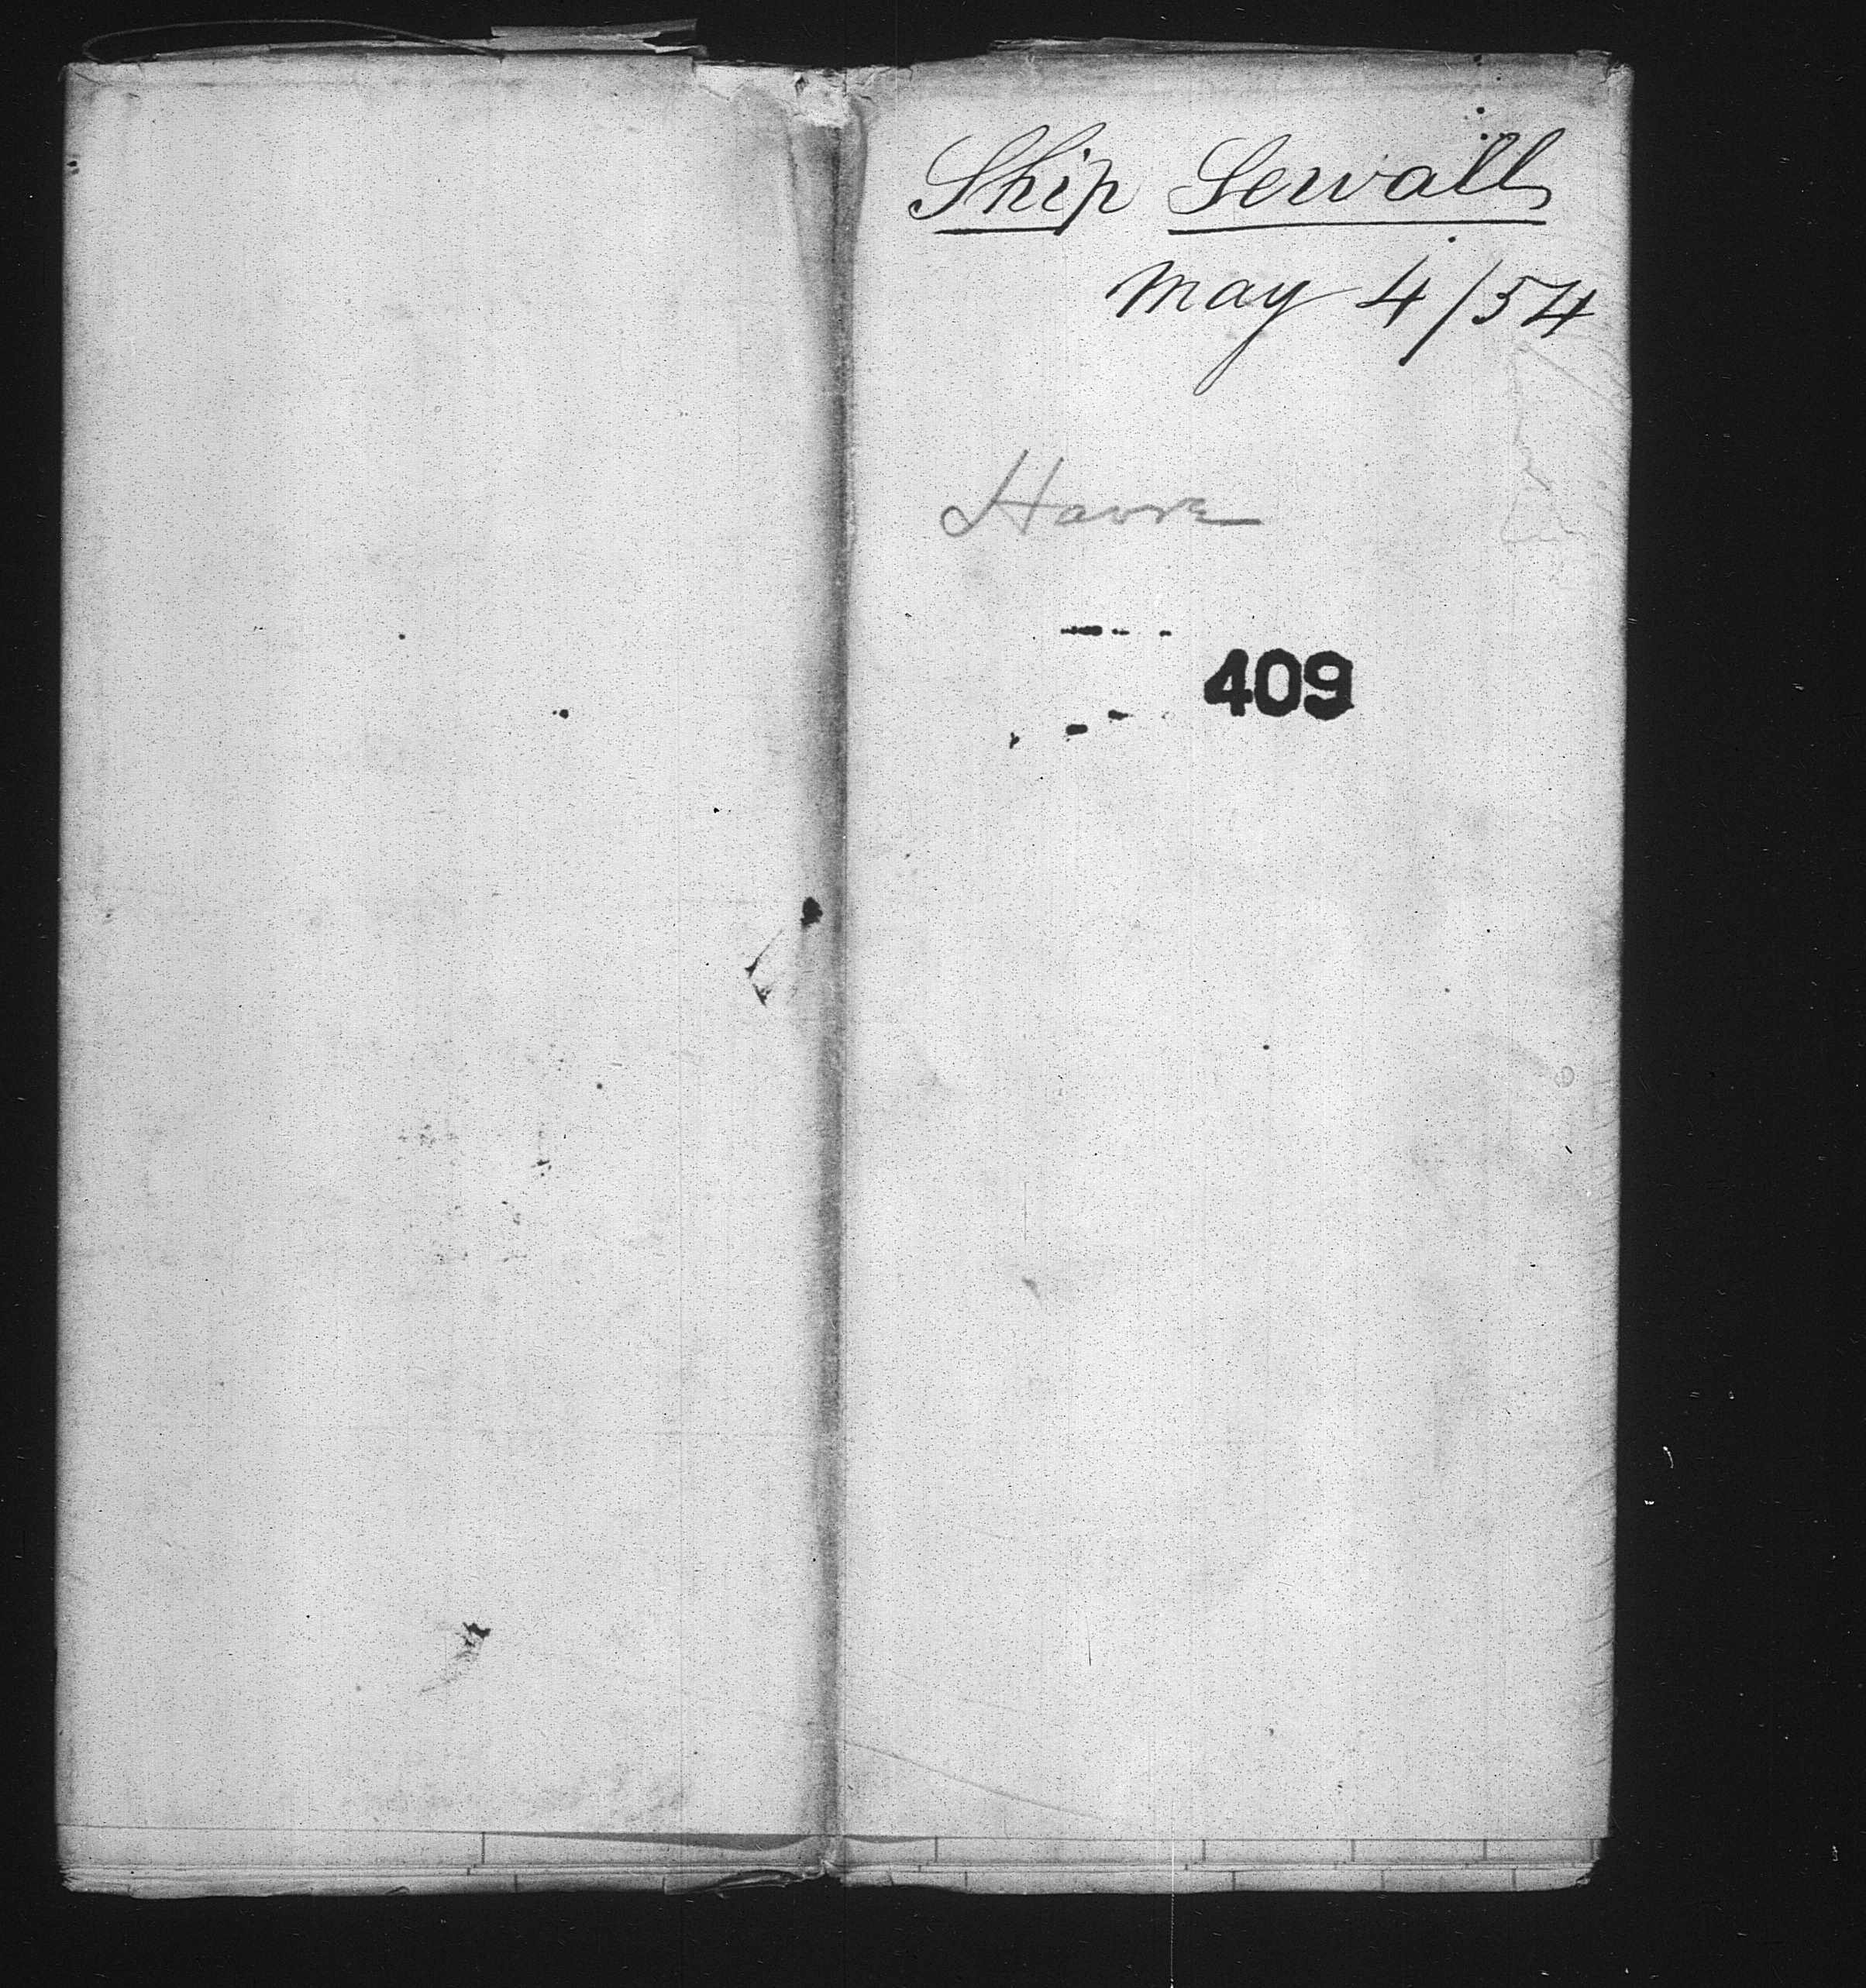 Ship Sewall
May 4/54
Havre
409